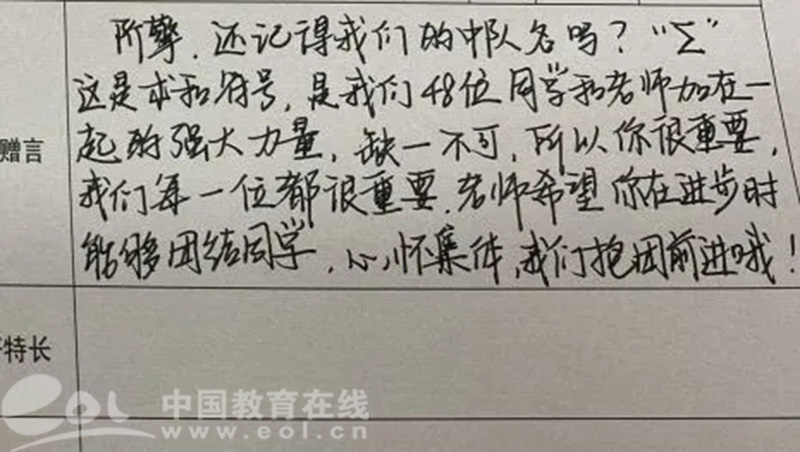 阶擎.还记得我们的中队名吗？“Σ”
这是求和符号,是我们48位同学和老师加在一
赠言
起的强大力量,缺一不可,所以你很重要,
我们每一位都很重要.老师希望你在进步时
能够团结同学,心怀集体,我们抱团前进哦！
特长
eol 中国教育在线
www.eol.cn